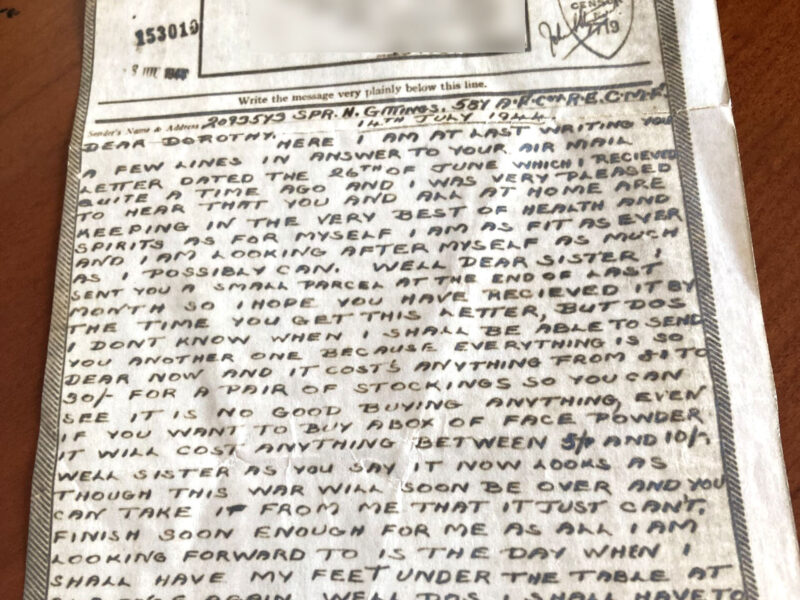 CENSOR
153019
Write the message very plainly below this line.
Sender's Name & Address 2093543 SPR. H. GITTINGS. 584 R.E. C.M.F.
14TH JULY 1944.
DEAR DOROTHY.
HERE I AM AT LAST WRITING YOU
A FEW LINES IN ANSWER TO YOUR AIR MAIL
LETTER DATED THE 26TH OF JUNE WHICH I RECIEVED
QUITE A TIME AGO AND I WAS VERY PLEASED
TO HEAR THAT YOU AND ALL AT HOME ARE
KEEPING IN THE VERY BEST OF HEALTH AND
SPIRITS AS FOR MYSELF I AM AS FIT AS EVER
AND I AM LOOKING AFTER MYSELF AS MUCH
AS I POSSIBLY CAN. WELL DEAR SISTER I
SENT YOU A SMALL PARCEL AT THE END OF LAST
MONTH SO I HOPE YOU HAVE RECIEVED IT BY
THE TIME YOU GET THIS LETTER, BUT DOS
I DONT KNOW WHEN I SHALL BE ABLE TO SEND
YOU ANOTHER ONE BECAUSE EVERYTHING IS SO
DEAR NOW AND IT COSTS ANYTHING FROM TO
30/- FOR A PAIR OF STOCKINGS SO YOU CAN
SEE IT IS NO GOOD BUYING ANYTHING, EVEN
IF YOU WANT TO BUY A BOX OF FACE POWDER
IT WILL COST ANYTHING BETWEEN 5/- AND 10/-.
WELL SISTER AS YOU SAY IT NOW LOOKS AS
THOUGH THIS WAR WILL SOON BE OVER AND YOU
CAN TAKE IT FROM ME THAT IT JUST CAN'T.
FINISH SOON ENOUGH FOR ME AS ALL I AM
LOOKING FORWARD TO IS THE DAY WHEN I
SHALL HAVE MY FEET UNDER THE TABLE AT
AGAIN. WELL DOS I SHALL HAVE TO